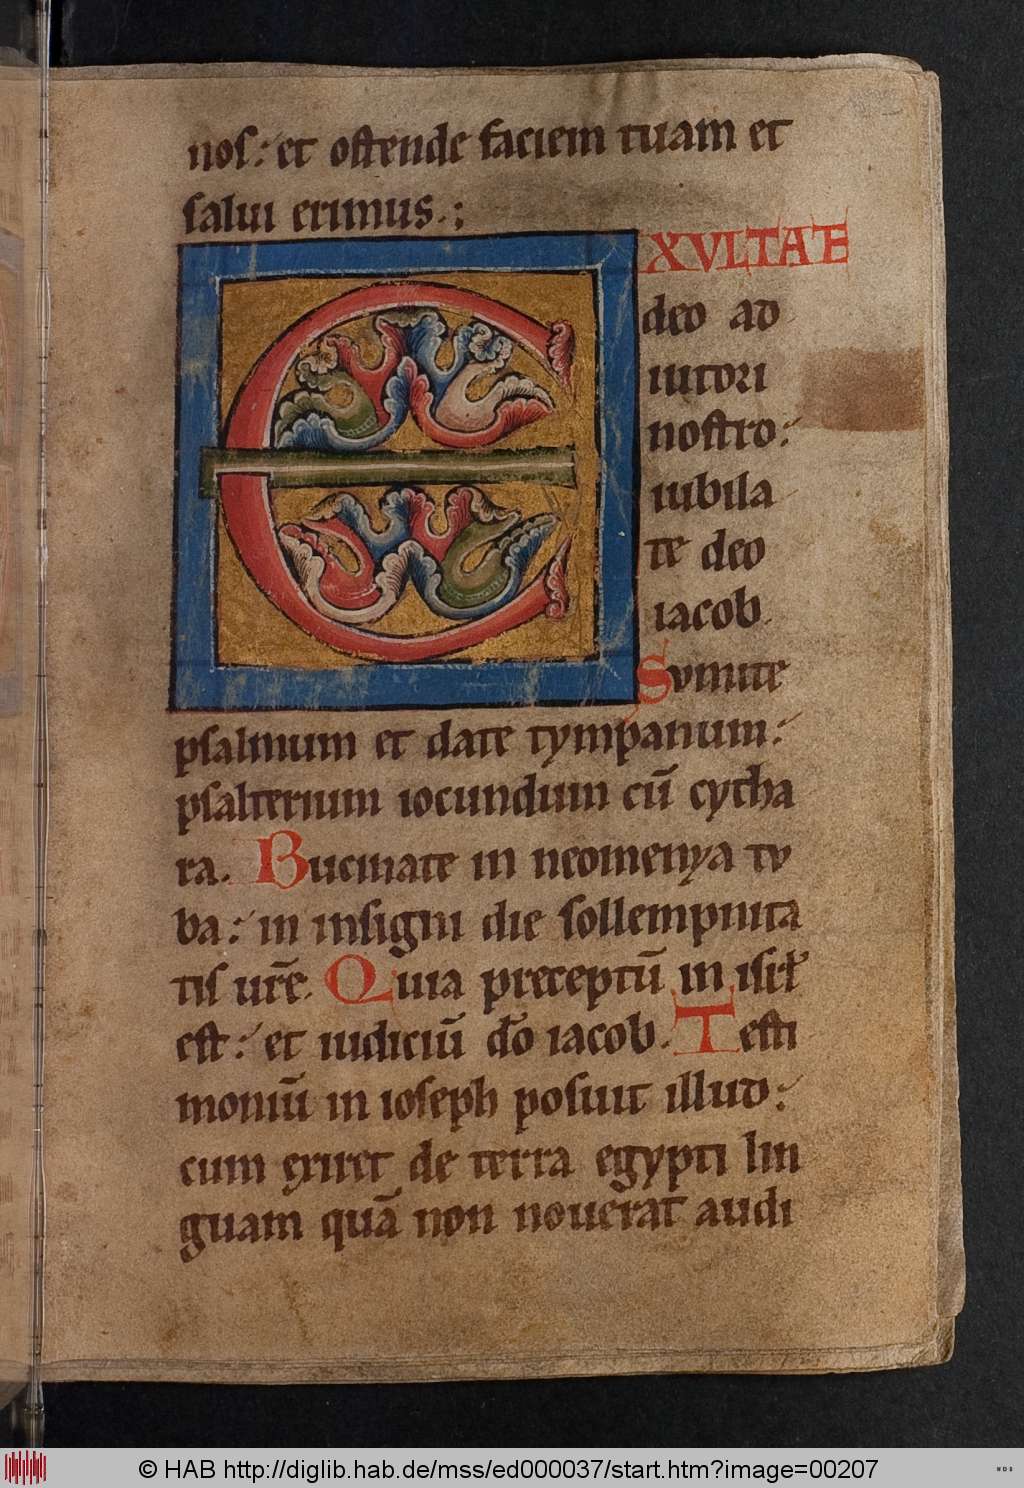 nos: et ostende faciem tuam et
salui erimus.;
EXVLTATE
deo ad
iutori
nostro:
iubila
te deo
iacob.
Sumite
psalmum et date tympanum:
psalterium iocundum cū cytha
ra. Bucinate in neomenya tu
ba: in insigni die sollempnita
tis ur̄e. Quia preceptū in isrł
est: et iudiciū dō iacob. Testi
moniū in ioseph posuit illud:
cum exiret de terra egypti lin
guam quā non nouerat audi
© HAB http://diglib.hab.de/mss/ed000037/start.htm?image=00207